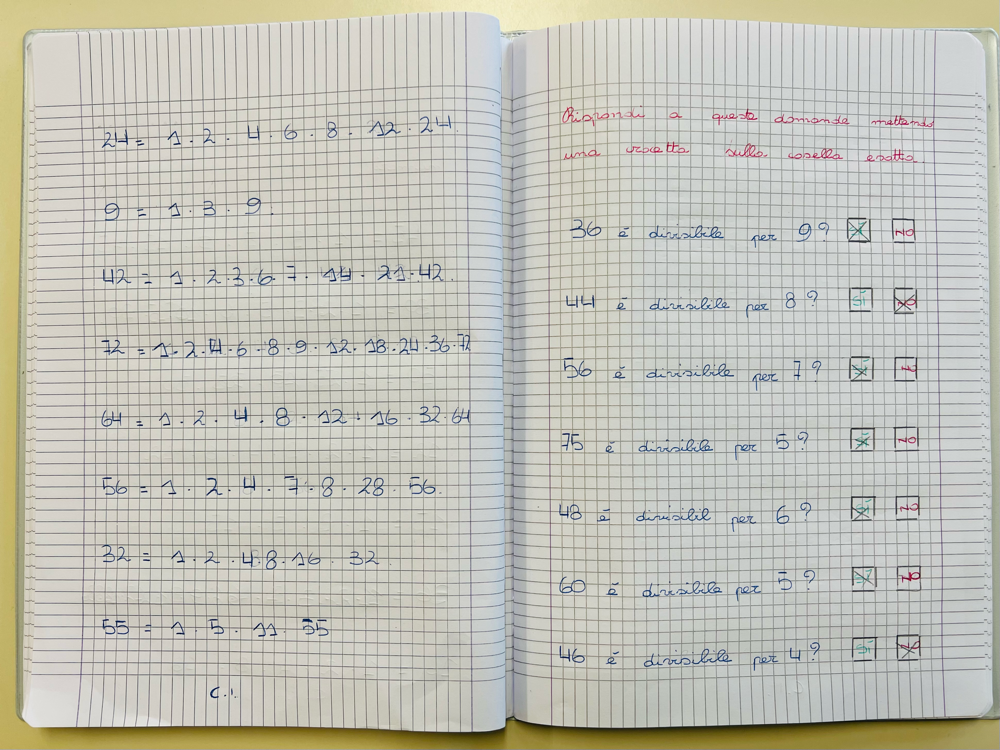 24 = 1 · 2 · 4 · 6 · 8 · 12 · 24.
9 = 1 · 3 · 9.
42 = 1 · 2 · 3 · 6 · 7 · 14 · 21 · 42.
72 = 1 · 2 · 4 · 6 · 8 · 9 · 12 · 18 · 24 · 36 · 72
64 = 1 · 2 · 4 · 8 · 12 · 16 · 32 · 64
56 = 1 · 2 · 4 · 7 · 8 · 28 · 56.
32 = 1 · 2 · 4 · 8 · 16 · 32
55 = 1 · 5 · 11 · 55
C.I.
Rispondi a queste domande mettendo
una crocetta sulla casella esatta.
36 è divisibile per 9? SÌ NO
44 è divisibile per 8? SÌ NO
56 è divisibile per 7? SÌ
75 è divisibile per 5? SÌ NO
48 è divisibil per 6? SÌ NO
60 è divisibile per 5? SÌ NO
46 è divisibile per 4? SÌ NO